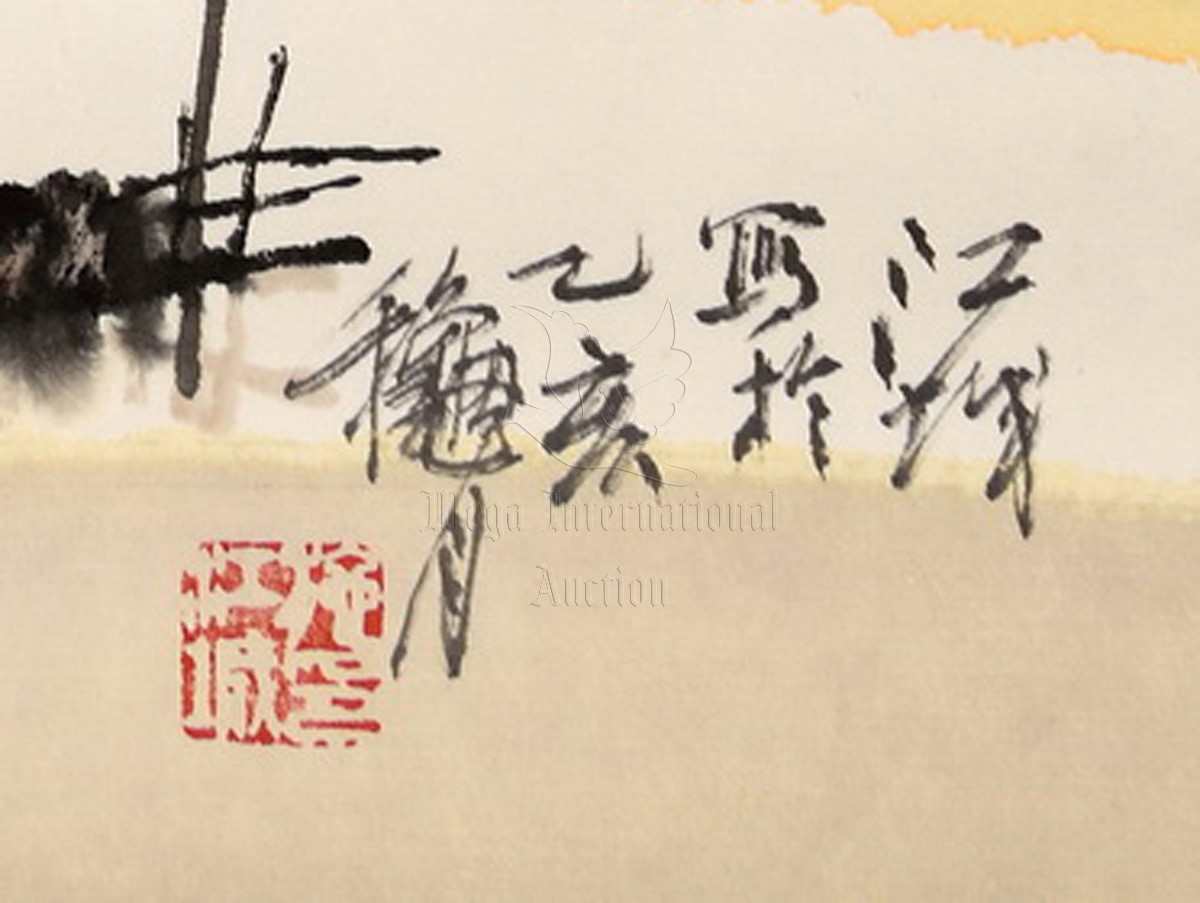 江城
寫於
乙亥
龝月
江城
Mega International
Auction